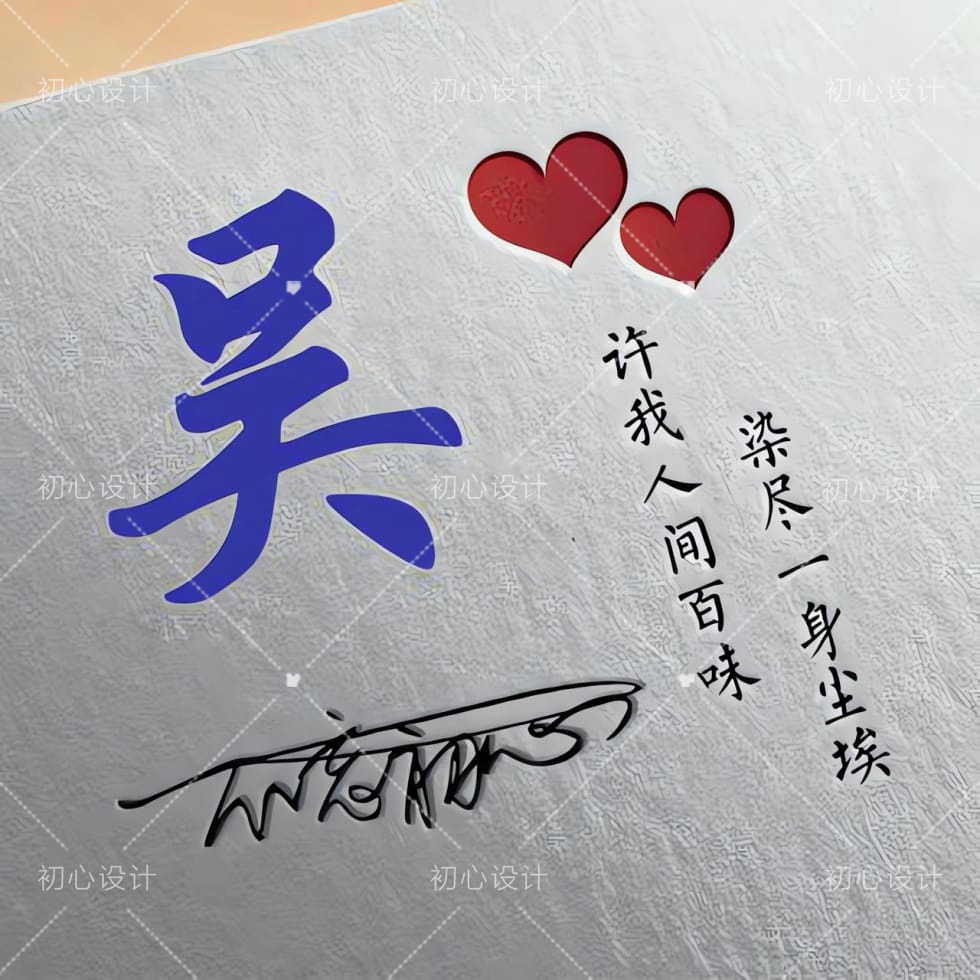 初心设计 初心设计 初心设计
吴
许我人间百味
染尽一身尘埃
初心设计 初心设计 初心设计
初心设计 初心设计 初心设计